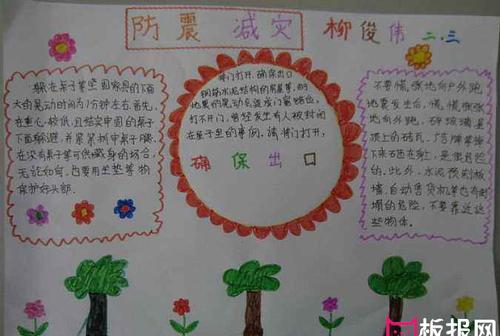 防震 减灾 柳俊伟 二.三
躲在桌子等坚固家具的下面
大的晃动时间约1分钟左右.首先,
在重心较低.且结实牢固的桌子
下面躲避.并紧紧抓牢桌子腿.
在没有桌子等可供藏身的场合,
无论如何.也要用坐垫等物
保护好头部.
将门打开.确保出口
钢筋水泥结构的房屋等,由于
地震的晃动会造成门窗错位,
打不开门.曾经发生有人被封闭
在屋子里的事例.请将门打开,
确 保 出 口
不要慌.张地向户外跑
地震发生后,慌.慌张张
地向外跑.碎玻璃.屋
顶上的砖瓦.广告牌等掉
下来砸在身上.是很危险
的.此外.水泥预制板
墙.自动售货机等也有倒
塌的危险,不要靠近这
些物体.
板报网